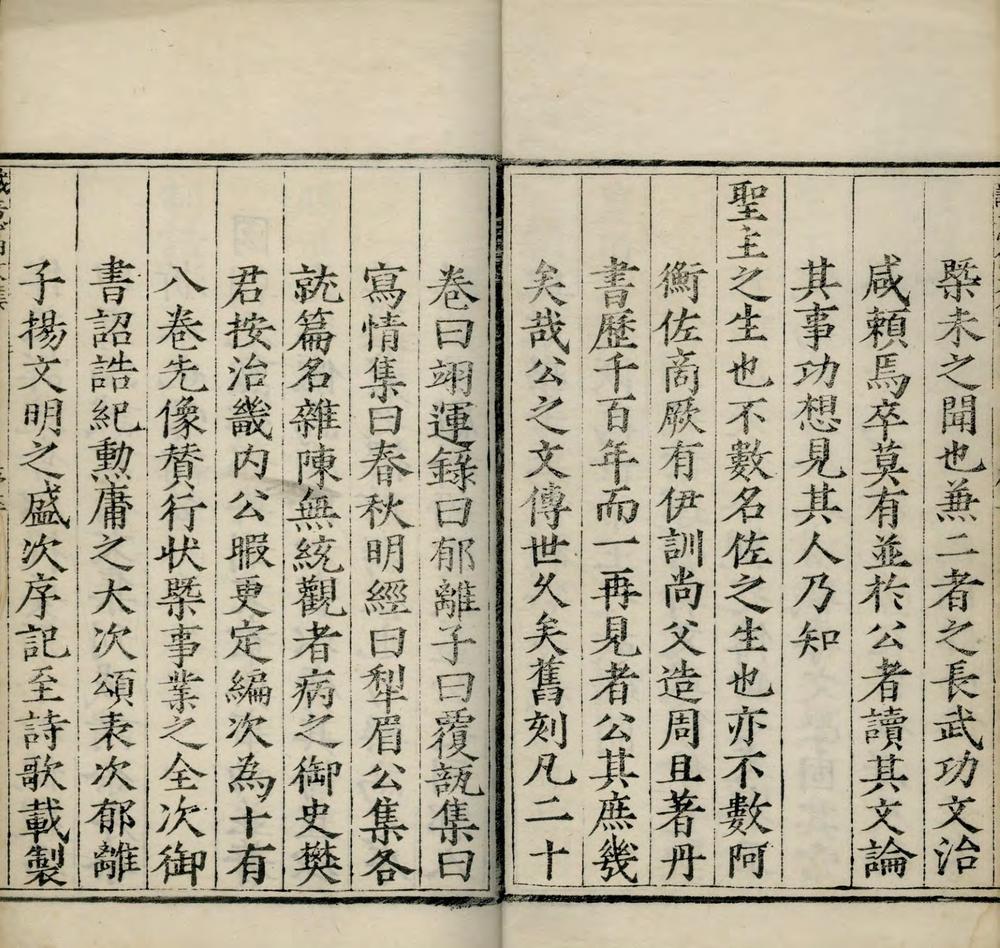 槩未之聞也兼二者之長武功文治
咸賴焉卒莫有並於公者讀其文論
其事功想見其人乃知
聖主之生也不數名佐之生也亦不數阿
衡佐商厥有伊訓尚父造周且著丹
書歷千百年而一再見者公其庶幾
矣哉公之文傳世久矣舊刻凡二十
卷曰翊運錄曰郁離子曰覆瓿集曰
寫情集曰春秋明經曰犁眉公集各
就篇名雜陳無統觀者病之御史樊
君按治畿内公暇更定編次為十有
八卷先像賛行状槩事業之全次御
書詔誥紀勲庸之大次頌表次郁離
子揚文明之盛次序記至詩歌載製